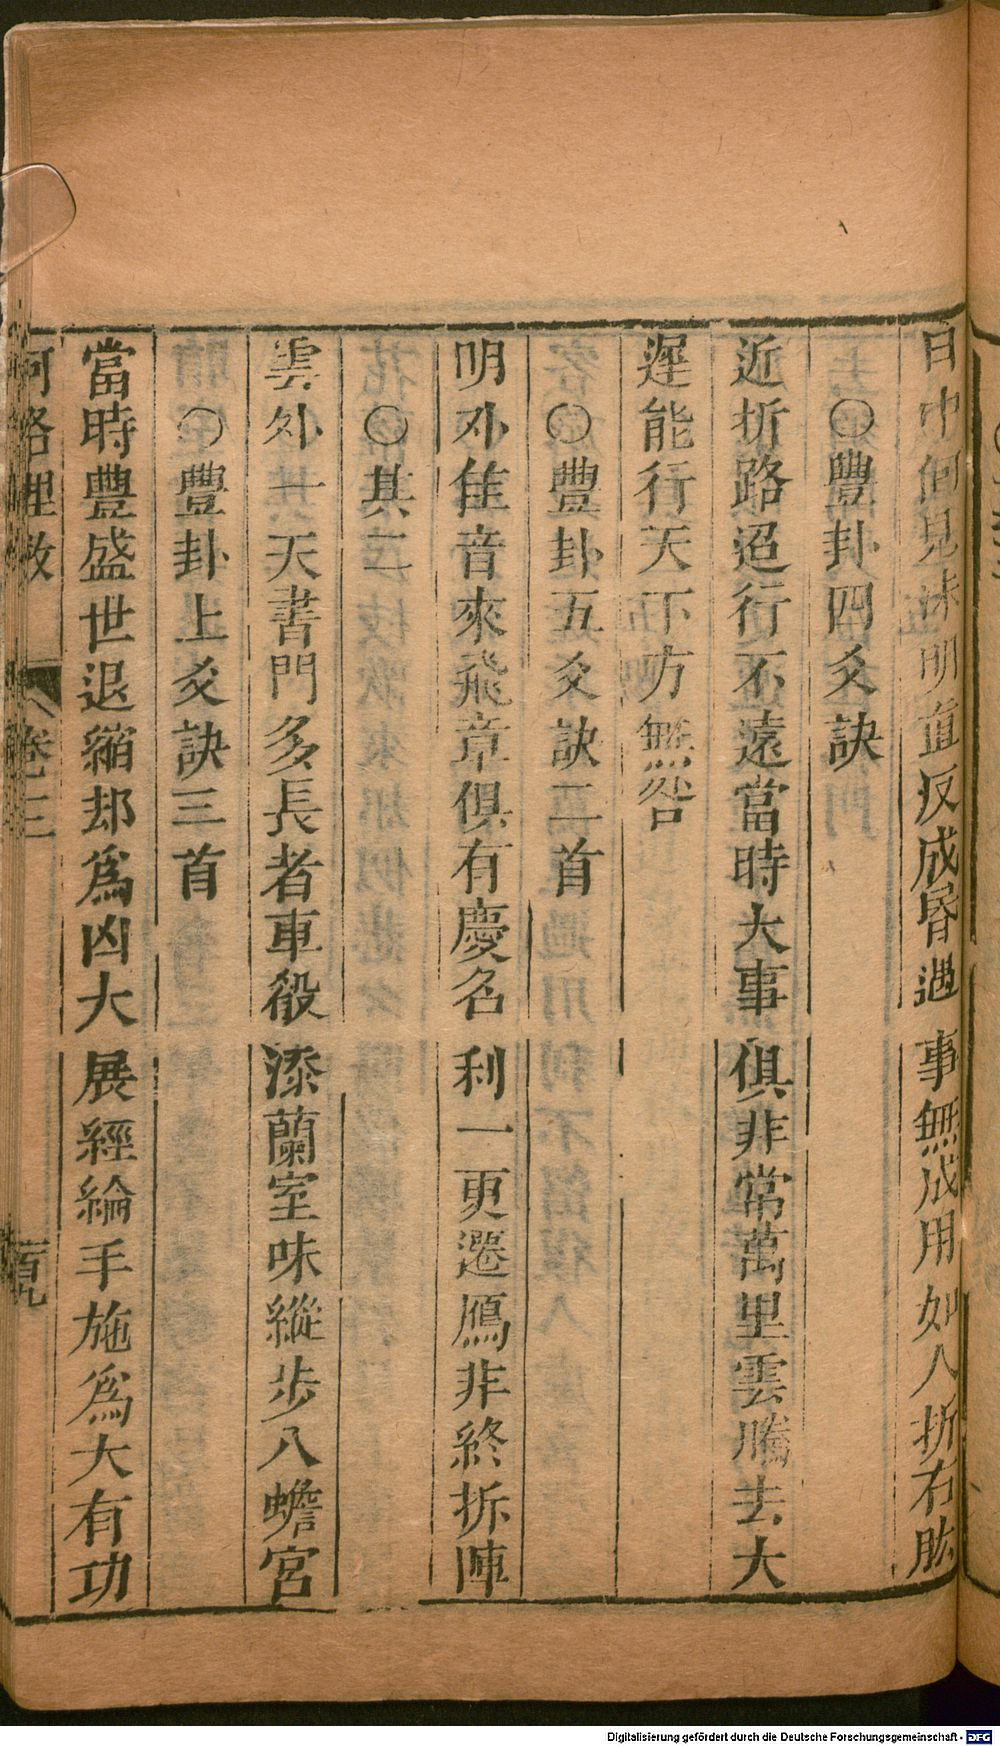 日中何見沬明道反成昬遇事無成用如人折右肱
○豐卦四爻訣
近折路迢行不遠當時大事俱非常萬里雲騰去大
遲能行天下方無咎
○豐卦五爻訣二首
明外佳音來飛章俱有慶名利一更遷鴈非終折陣
○其二
雲外一天書門多長者車殽漆蘭室味縱步入蟾宮
○豐卦上爻訣三首
當時豐盛世退縮却爲凶大展經綸手施爲大有功
河洛理數 卷三
Digitalisierung gefördert durch die Deutsche Forschungsgemeinschaft - DFG